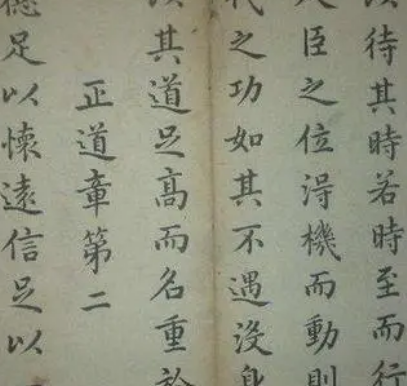 待其時若時至而行
臣之位淂機而動則
代之功如其不遇沒身
其道足高而名重於
正道章第二
德足以懷遠信足以